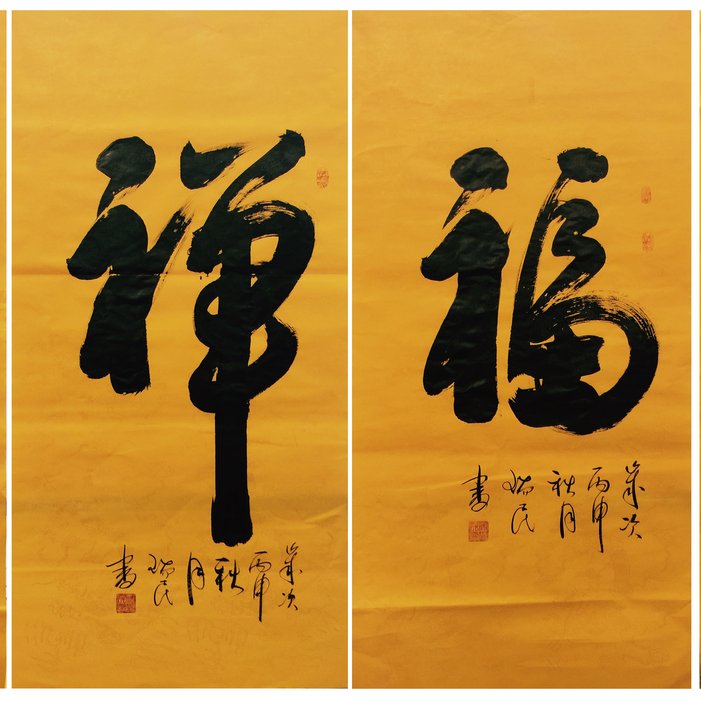 禅
岁次
丙申
秋
月
瑞民
书
福
岁次
丙申
秋月
瑞民
书